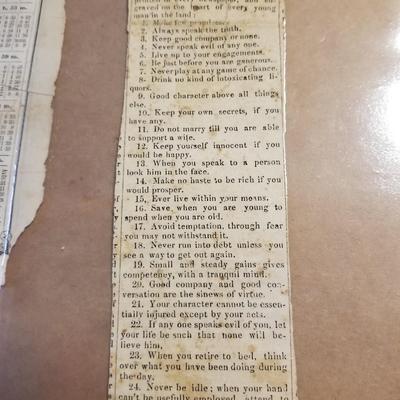 printed in every newspaper, and en-
graved on the heart of every young
man in the land:
1. Make few promises.
2. Always speak the truth.
3. Keep good company or none.
4. Never speak evil of any one.
5. Live up to your engagements.
6. Be just before you are generous.
7. Never play at any game of chance.
8. Drink no kind of intoxicating li-
quors.
9. Good character above all things
else.
10. Keep your own secrets, if you
have any.
11. Do not marry till you are able
to support a wife.
12. Keep yourself innocent if you
would be happy.
13. When you speak to a person
look him in the face.
14. Make no haste to be rich if you
would prosper.
15. Ever live within your means.
16. Save when you are young to
spend when you are old.
17. Avoid temptation, through fear
you may not withstand it.
18. Never run into debt unless you
see a way to get out again.
19. Small and steady gains gives
competency, with a tranquil mind.
20. Good company and good con-
versation are the sinews of virtue.
21. Your character cannot be essen-
tially injured except by your acts.
22. If any one speaks evil of you, let
your life be such that none will be-
lieve him.
23. When you retire to bed, think
over what you have been doing during
the day.
24. Never be idle; when your hand
can't be usefully employed, attend to